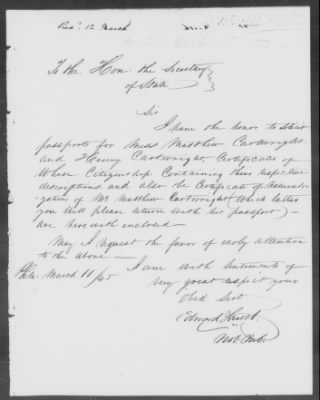 Recd 12 March
To the Hon the Secretary
of State
Sir
I have the honor to solicit
passports for Messrs Matthew Cartwright
and Henry Cartwright, Certificates of
Whose Citizenship Containing their respective
descriptions and also the Certificate of
of Mr. Matthew Cartwright (Which latter
you will please return with his passport) —
are herewith enclosed —
May I request the favor of early attention
to the above —
I am with Sentiments of
Phila: March 11/65
very great respect your
Obed Servt
Edward
Not. Pub.